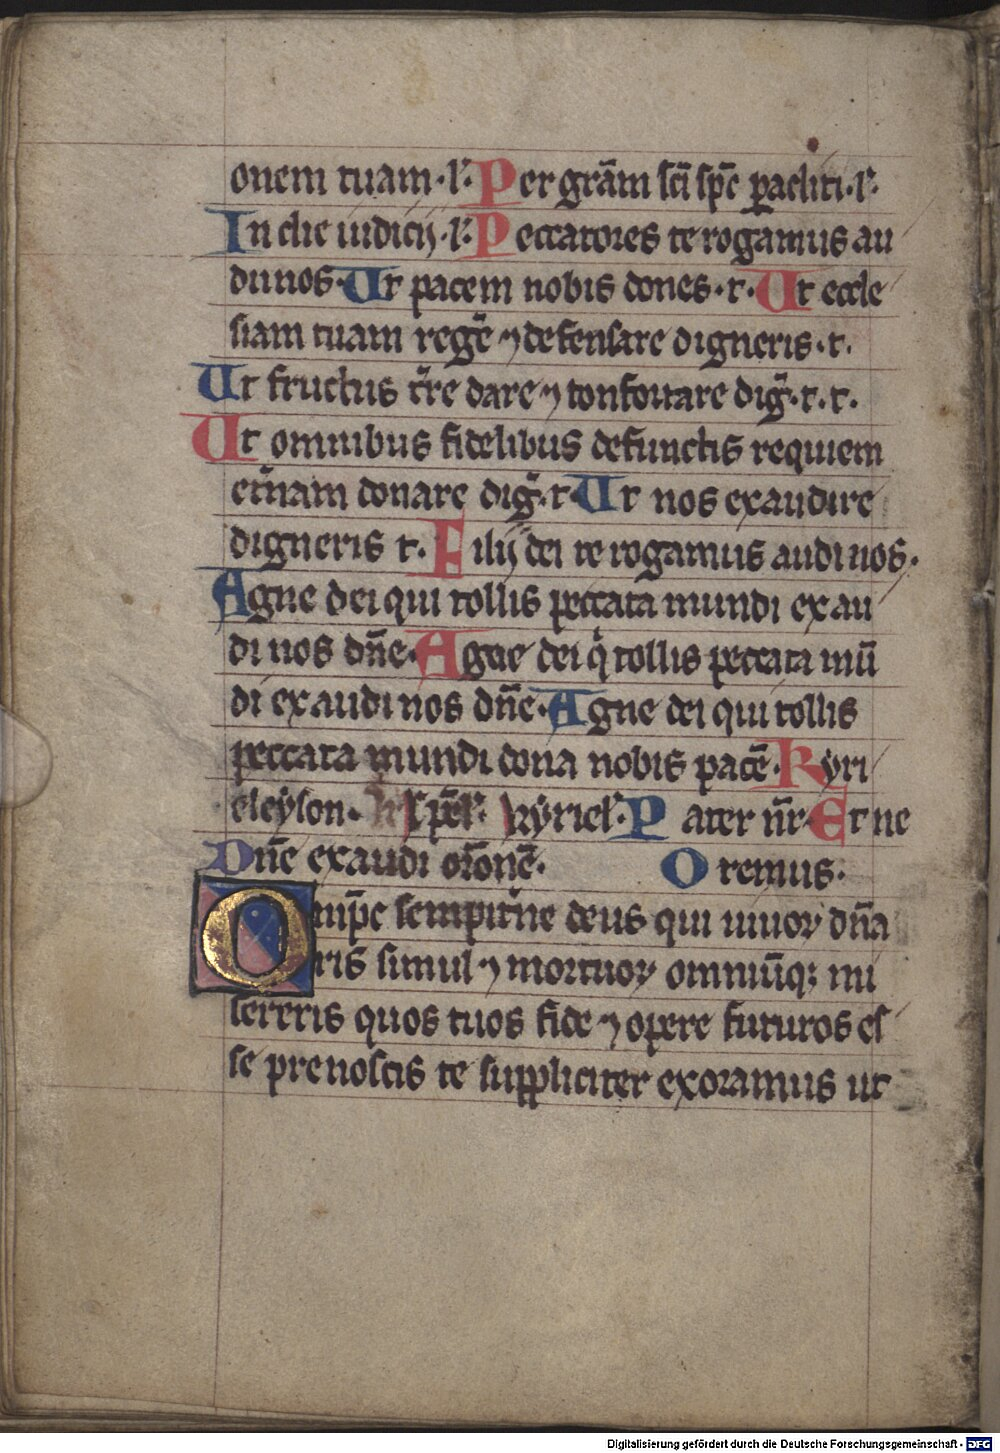 onem tuam·l᷎· Per grām sc̄i sp̄c ꝑacliti·l᷎·
In die iudicij·l᷎· Peccatores te rogamus au
di nos· Ut pacem nobis dones·t· Ut eccle
siam tuam regē ⁊ defensare digneris·t·
Ut fructus t̄re dare ⁊ conseruare diḡ·t·t·
Ut omnibus fidelibus defunctis requiem
et̄nam donare diḡ·t· Ut nos exaudire
digneris t· Filij dei te rogamus audi nos·
Agne dei qui tollis peccata mundi exau
di nos dn̄e· Agne dei qͥ tollis peccata mū
di exaudi nos dn̄e· Agne dei qui tollis
peccata mundi dona nobis pacē· Kyri
eleyson· Kyriel᷎· Pater nr̄· Et ne
Dn̄e exaudi or̄onē· Oremus·
Omp̄c sempit̄ne deus qui uiuoꝝ dn̄a
ris simul ⁊ mortuoꝝ omniūqꝫ mi
sereris quos tuos fide ⁊ opere futuros es
se prenoscis te suppliciter exoramus ut
Digitalisierung gefördert durch die Deutsche Forschungsgemeinschaft - DFG